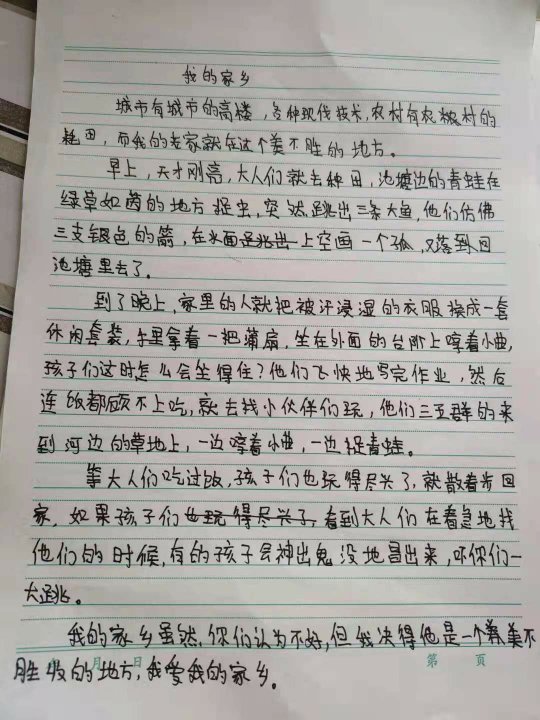 我的家乡
城市有城市的高楼，多种现代技术，农村有农村的
耗田，而我的老家就在这个美不胜的地方。
早上，天才刚亮，大人们就去种田，池塘边的青蛙在
绿草如茵的地方捉虫，突然跳出三条大鱼，他们仿佛
三支银色的箭，在水面跳出上空画一个孤，又落到回
池塘里去了。
到了晚上，家里的人就把被汗浸湿的衣服换成一套
休闲套装，手里拿着一把蒲扇，坐在外面的台阶上哼着小曲，
孩子们这时怎么会坐得住？他们飞快地写完作业，然后
连饭都顾不上吃，就去找小伙伴们玩，他们三五群的来
到河边的草地上，一边哼着小曲，一边捉青蛙。
等大人们吃过饭，孩子们也玩得尽兴了，就散着步回
家，如果孩子们也玩得尽兴了，看到大人们在着急地找
他们的时候，有的孩子会神出鬼没地冒出来，吓你们一
大跳。
我的家乡虽然，你们认为不好，但我决得他是一个美不
胜收的地方，我爱我的家乡。
月 日 第 页